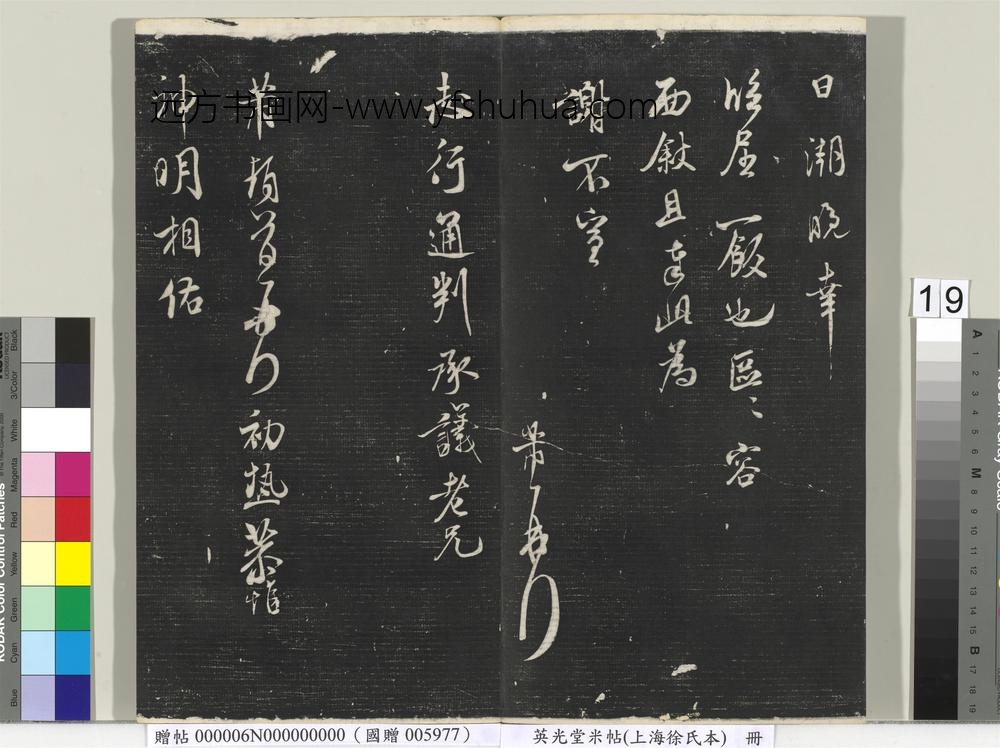 日湖晚幸
临屈一飯也區〻容
面敘且達此為
謝不宣
芾頓首
赤行通判承議老兄
芾頓首 初熱恭惟
神明相佑
远方书画网-www.yfshuhua.com
19
贈帖 000006N000000000（國贈 005977）
英光堂米帖(上海徐氏本) 冊
KODAK Color Control Patches
Blue
Cyan
Green
Yellow
Red
Magenta
White
3/Color
Black
A
1
2
3
4
5
6
M
8
9
10
11
12
13
14
15
B
17
18
19